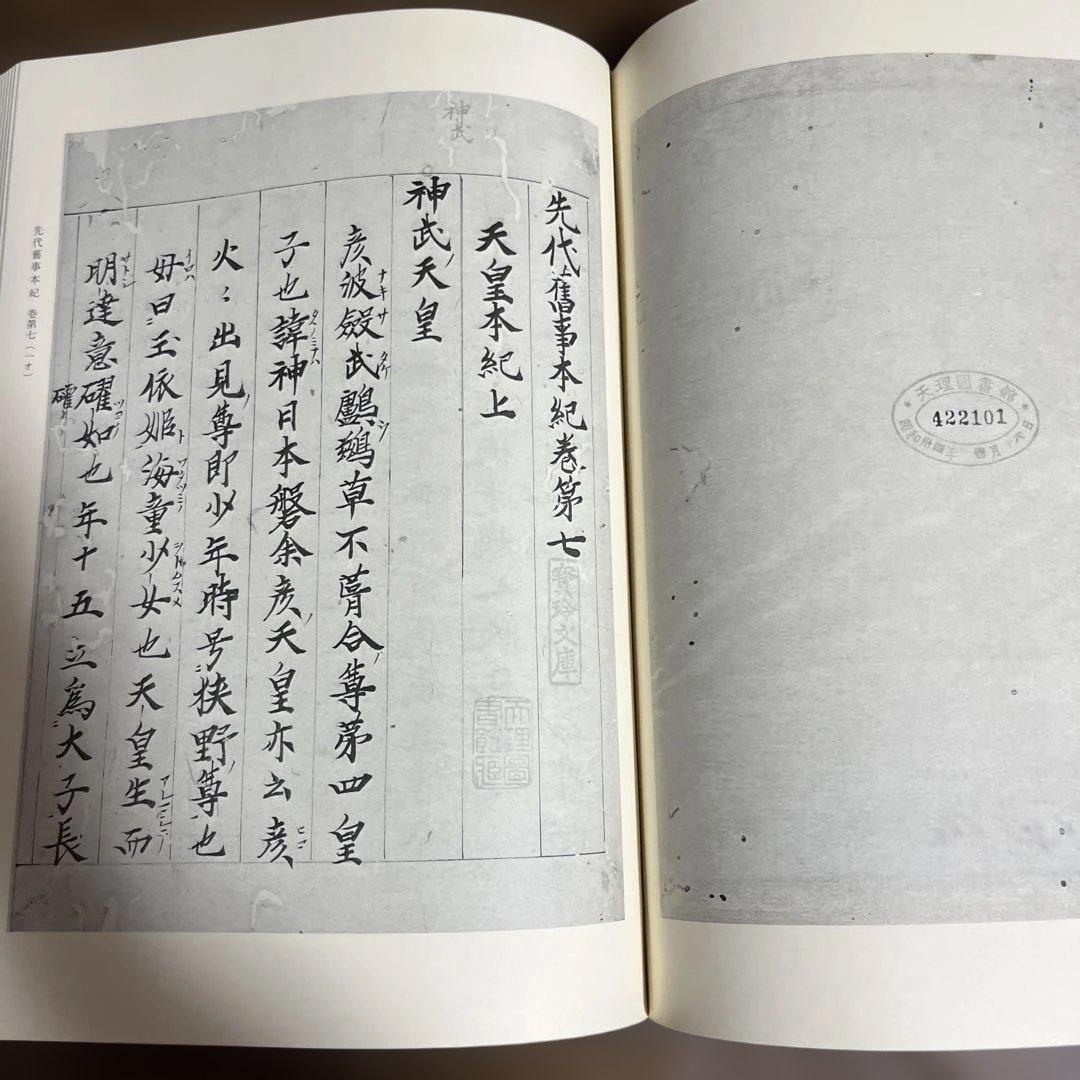 天理圖書館
422101
神武
先代舊事本紀卷第七
寳玲文庫
天皇本紀上
天理圖書館蔵
神武天皇
彦波瀲武鸕鷀草不葺合尊第四皇
子也諱神日本磐余彦天皇亦云彦
火〻出見尊即少年時号狭野尊也
母曰玉依姫海童少女也天皇生而
明達意礭如也年十五立為大子長
先代舊事本紀 卷第七(一オ)